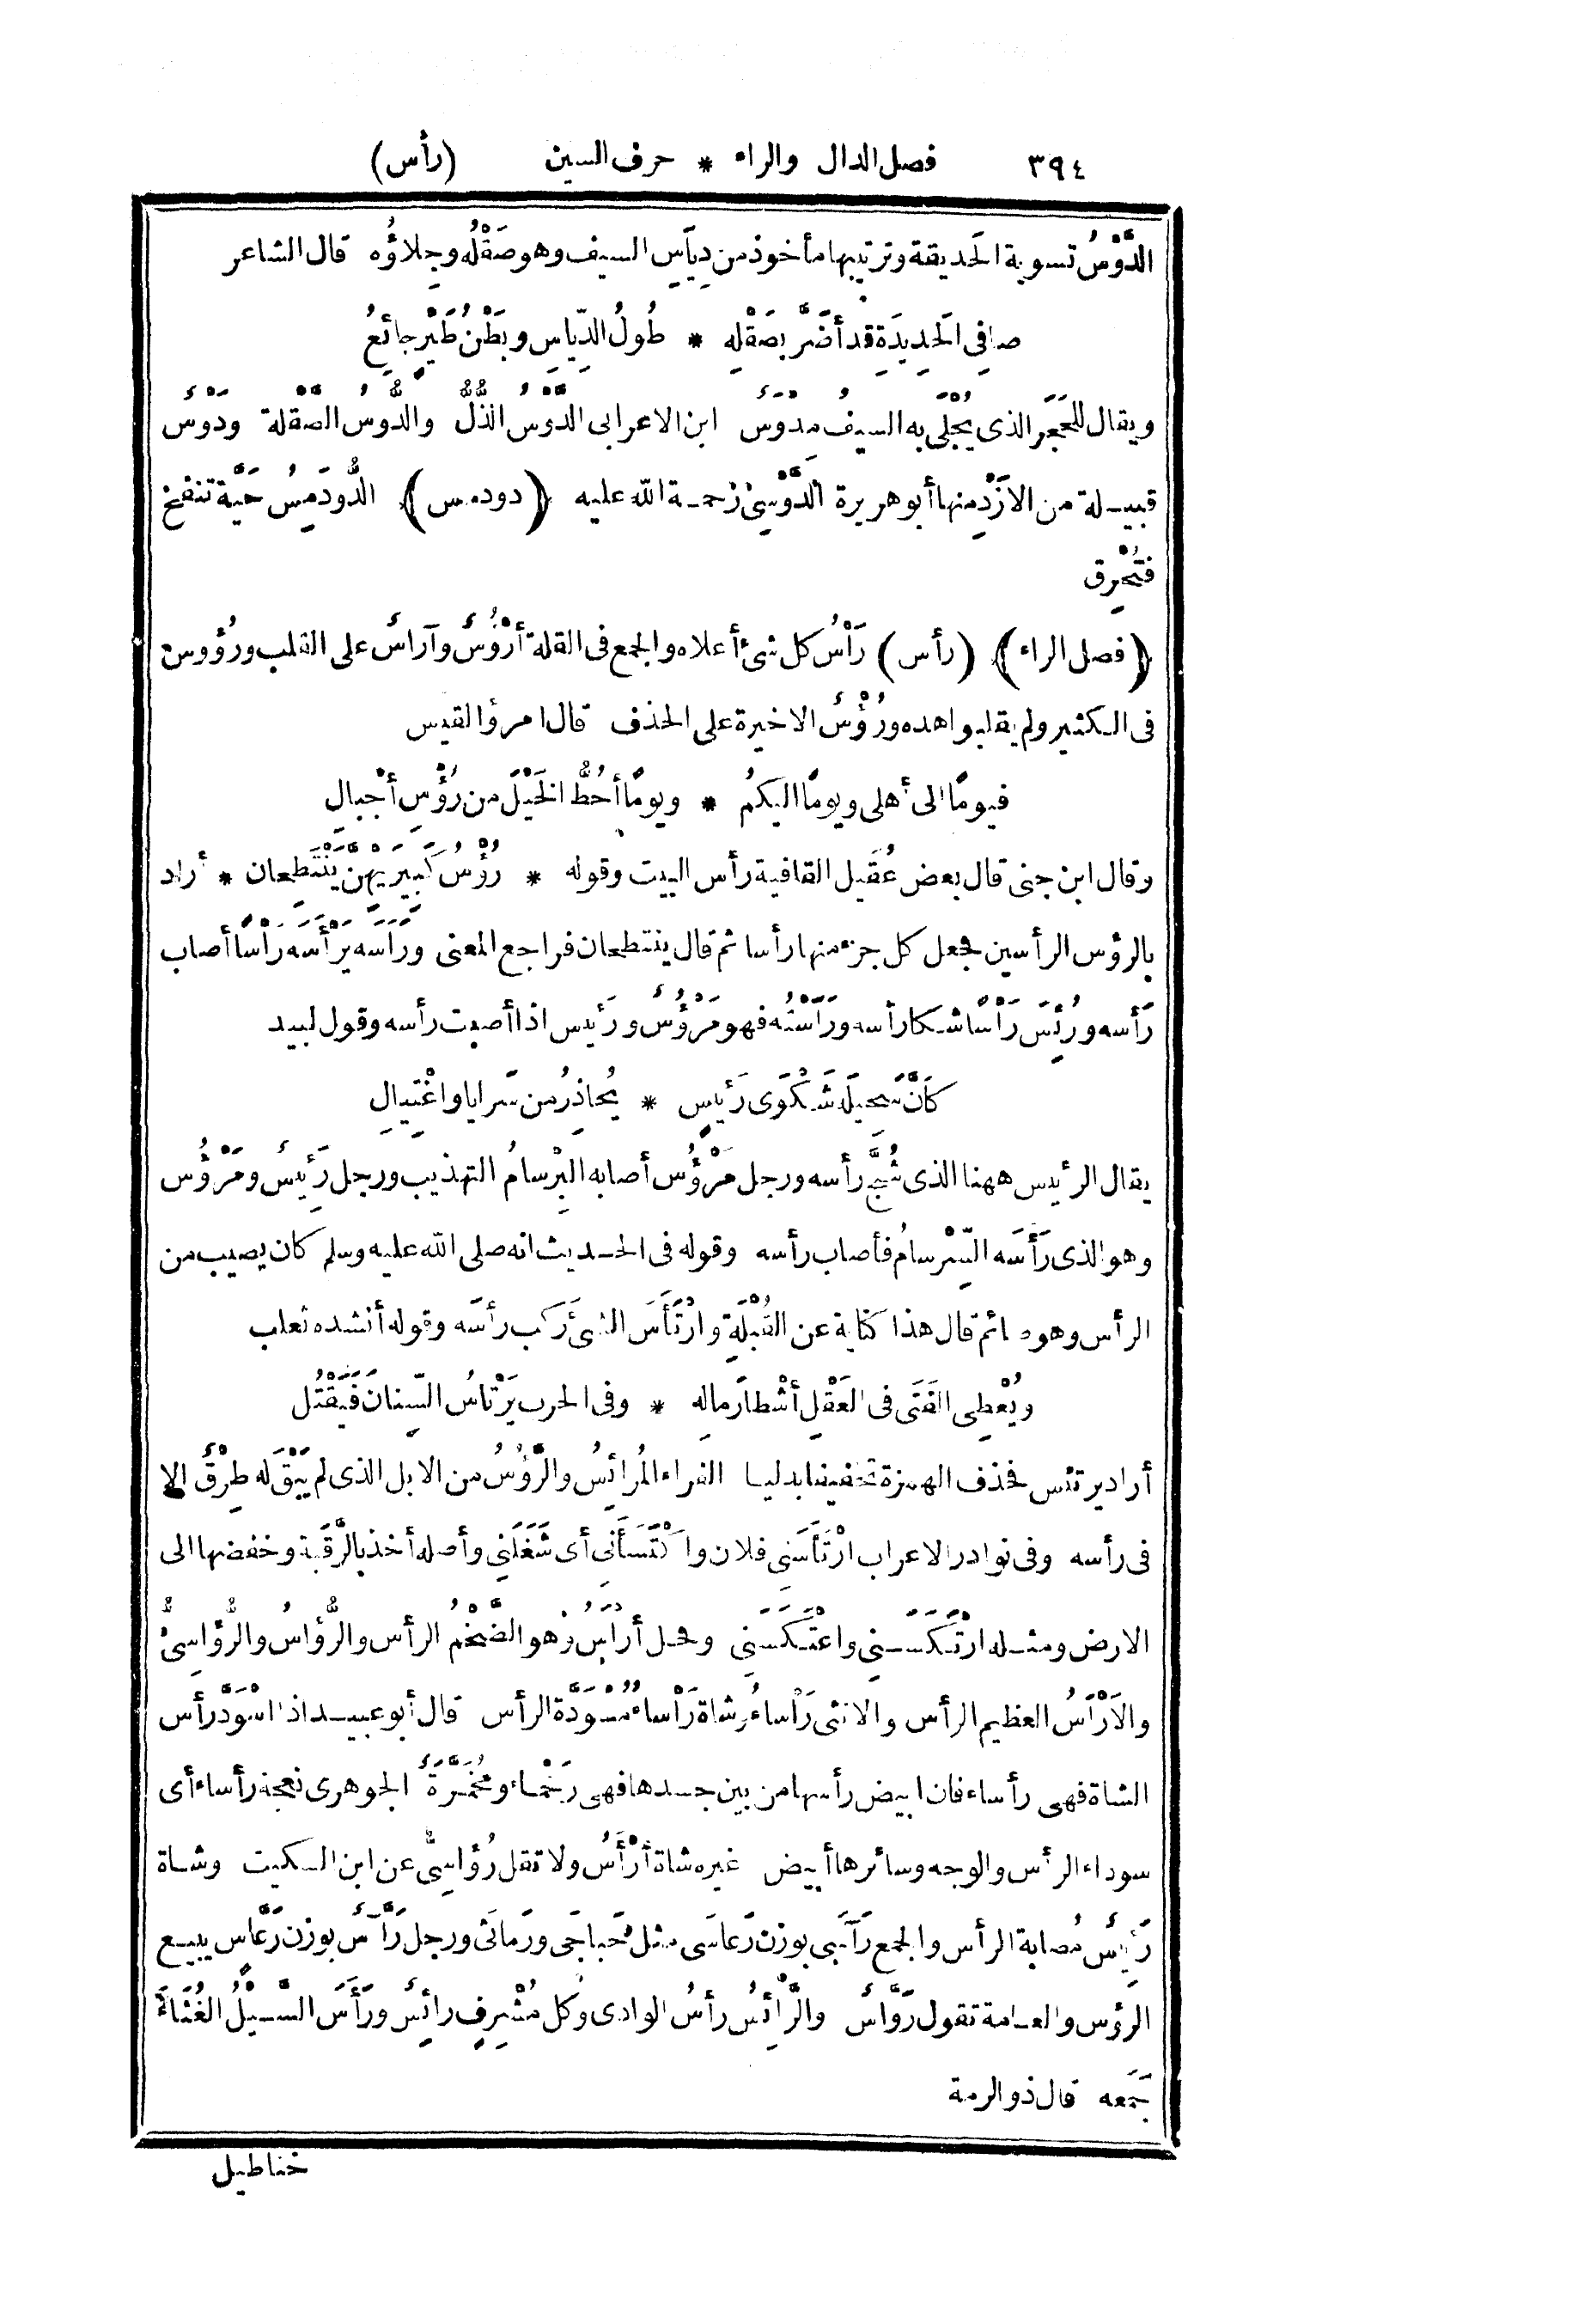 ٣٩٤ فصل الدال والراء * حرف السين (رأس)
الدَّوْسُ تسوية الحَديقة وترتيبها مأخوذ من دِيَاسِ السيف وهو صَقْلُه وجِلاؤُه قال الشاعر
صافِى الحَدِيدَةِ قد أَضَرَّ بصَقْلِه * طُولُ الدِّياسِ وبَطْنُ طَيْرٍ جائِعُ
ويقال للحَجَر الذى يُجْلَى به السيفُ مِدْوَسٌ ابن الاعرابى الدَّوْسُ الذُّلُّ والدُّوسُ الصَّقْلة ودَوْسٌ
قبيلة من الازْدِ منها أبو هريرة الدَّوْسِىّ رحمة الله عليه (دودمس) الدُّودَمِسُ حَيَّة تنفخ
فتُحْرِق
(فصل الراء) (رأس) رَأْسُ كل شئ أعلاه والجمع فى القلة أَرْؤُسٌ وآراسٌ على القلب ورُؤُوس
فى الكثير ولم يقلبوا هذه ورُؤْسٌ الاخيرة على الحذف قال امرؤ القيس
فيومًا الى أهلى ويومًا اليكمُ * ويومًا أَحُطُّ الخَيْلَ من رُؤْسِ أَجْبالِ
وقال ابن جنى قال بعض عُقَيل القافية رأس البيت وقوله * رُؤْسُ كَبِيرَيْهِنَّ يَنْتَطِحان * أراد
بالرؤس الرأسين فجعل كل جزء منها رأسا ثم قال ينتطحان فراجع المعنى ورَأَسَه يَرْأَسَه رَأْسًا أصاب
رَأْسه ورُئِسَ رَأْسًا شكا رأسه ورَأَسْتُه فهو مَرْؤُسٌ ورَئِيس اذا أصبت رأسه وقول لبيد
كَأَنَّ سَحِيلَه شَكْوَى رَئيسٍ * يُحاذِرُ من سَرايا واغْتِيالِ
يقال الرئيس ههنا الذى شُجَّ رأسه ورجل مَرْؤُس أصابه البِرْسامُ التهذيب ورجل رَئِيسٌ ومَرْؤُس
وهو الذى رَأَسَه السِّرْسامُ فأصاب رأسه وقوله فى الحديث انه صلى الله عليه وسلم كان يصيب من
الرأس وهو صائم قال هذا كناية عن القُبْلَةِ وارْتَأَسَ الشئَ رَكب رأسَه وقوله أنشده ثعلب
ويُعْطِى الفَتَى فى العَقْلِ أَشْطارَ مالِه * وفى الحرب يَرْتاسُ السِّنانَ فَيَقْتُل
أراد يرتئس فحذف الهمزة تخفيفا بدليا الفراء المُرائِسُ والرَّؤُسُ من الابل الذى لم يَبْقَ له طِرْقٌ الا
فى رأسه وفى نوادر الاعراب ارْتَأَسَنِى فلان واكْتَسَأَنى أى شَغَلَنِى وأصله أخذ بالرَّقَبَة وخفضها الى
الارض ومثله ارْتَكَسَنِى واعْتَكَسَنِى وفحل أَرْأَسُ وهو الضَّخْمُ الرأس والرُّؤاسُ والرُّؤاسِىُّ
والاَرْأَسُ العظيم الرأس والانثى رَأْساءُ وشاة رَأْساءُ مُسْوَدَّة الرأس قال أبو عبيد اذا اسْوَدَّ رأس
الشاة فهى رأساء فان ابيض رأسها من بين جسدها فهى رَخْماء ومُخَمَّرَةٌ الجوهرى نعجة رأساء أى
سوداء الرأس والوجه وسائرها أبيض غيره شاة أَرْأَسُ ولا تقل رُؤاسِىٌّ عن ابن السكيت وشاة
رَئِيسٌ مُصابة الرأس والجمع رَآسَى بوزن رَعاسَى مثل حَباجَى ورَماثَى ورجل رَأَّسٌ بوزن رَعَّاس يبيع
الرؤس والعامة تقول رَوَّاسٌ والرَّائِسُ رأسُ الوادى وكل مُشْرِفٍ رائِسٌ ورَأَسَ السَّيْلُ الغُثَاءَ
جَمَعه قال ذو الرمة
خناطيل